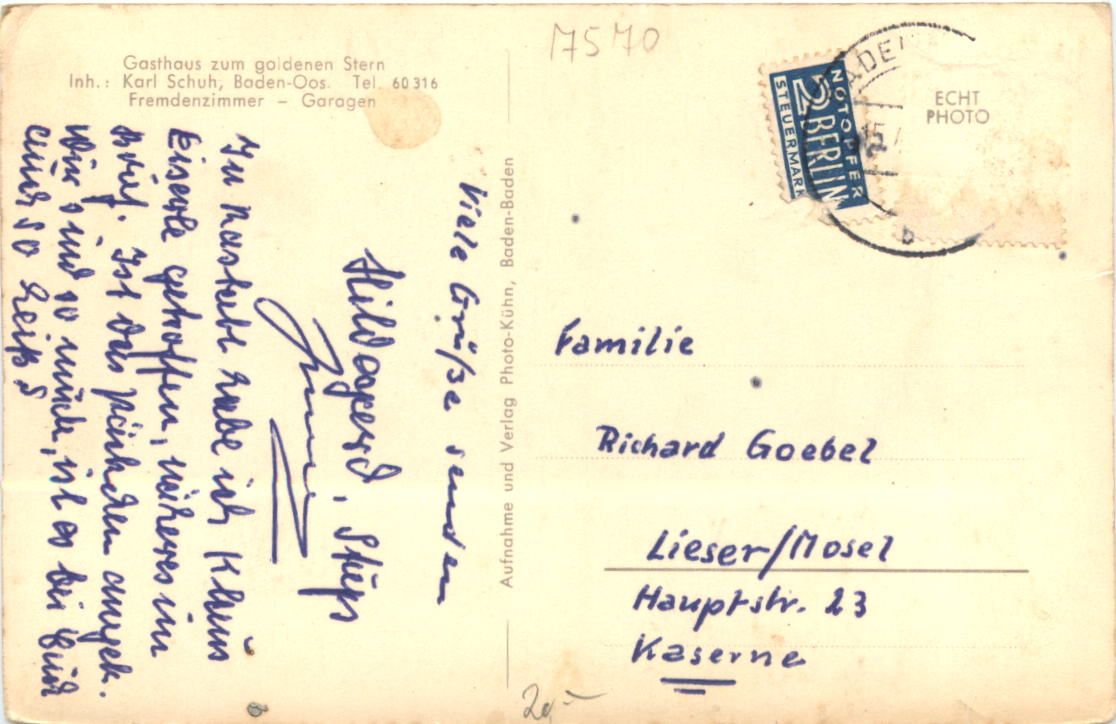 Gasthaus zum goldenen Stern
Inh.: Karl Schuh, Baden-Oos. Tel. 60316
Fremdenzimmer – Garagen
Viele Grüße senden
Hildegard,
In Rastatt habe ich Klaus
Eiserle getroffen, näheres im
Brief. Ist das Päckchen angek.
Wir sind so müde, ist es bei Euch
auch so heiß?
Aufnahme und Verlag Photo-Kühn, Baden-Baden
7570
NOTOPFER
2 BERLIN
STEUERMARKE
BADEN
b
ECHT
PHOTO
Familie
Richard Goebel
Lieser/Mosel
Hauptstr. 23
Kaserne
20,-